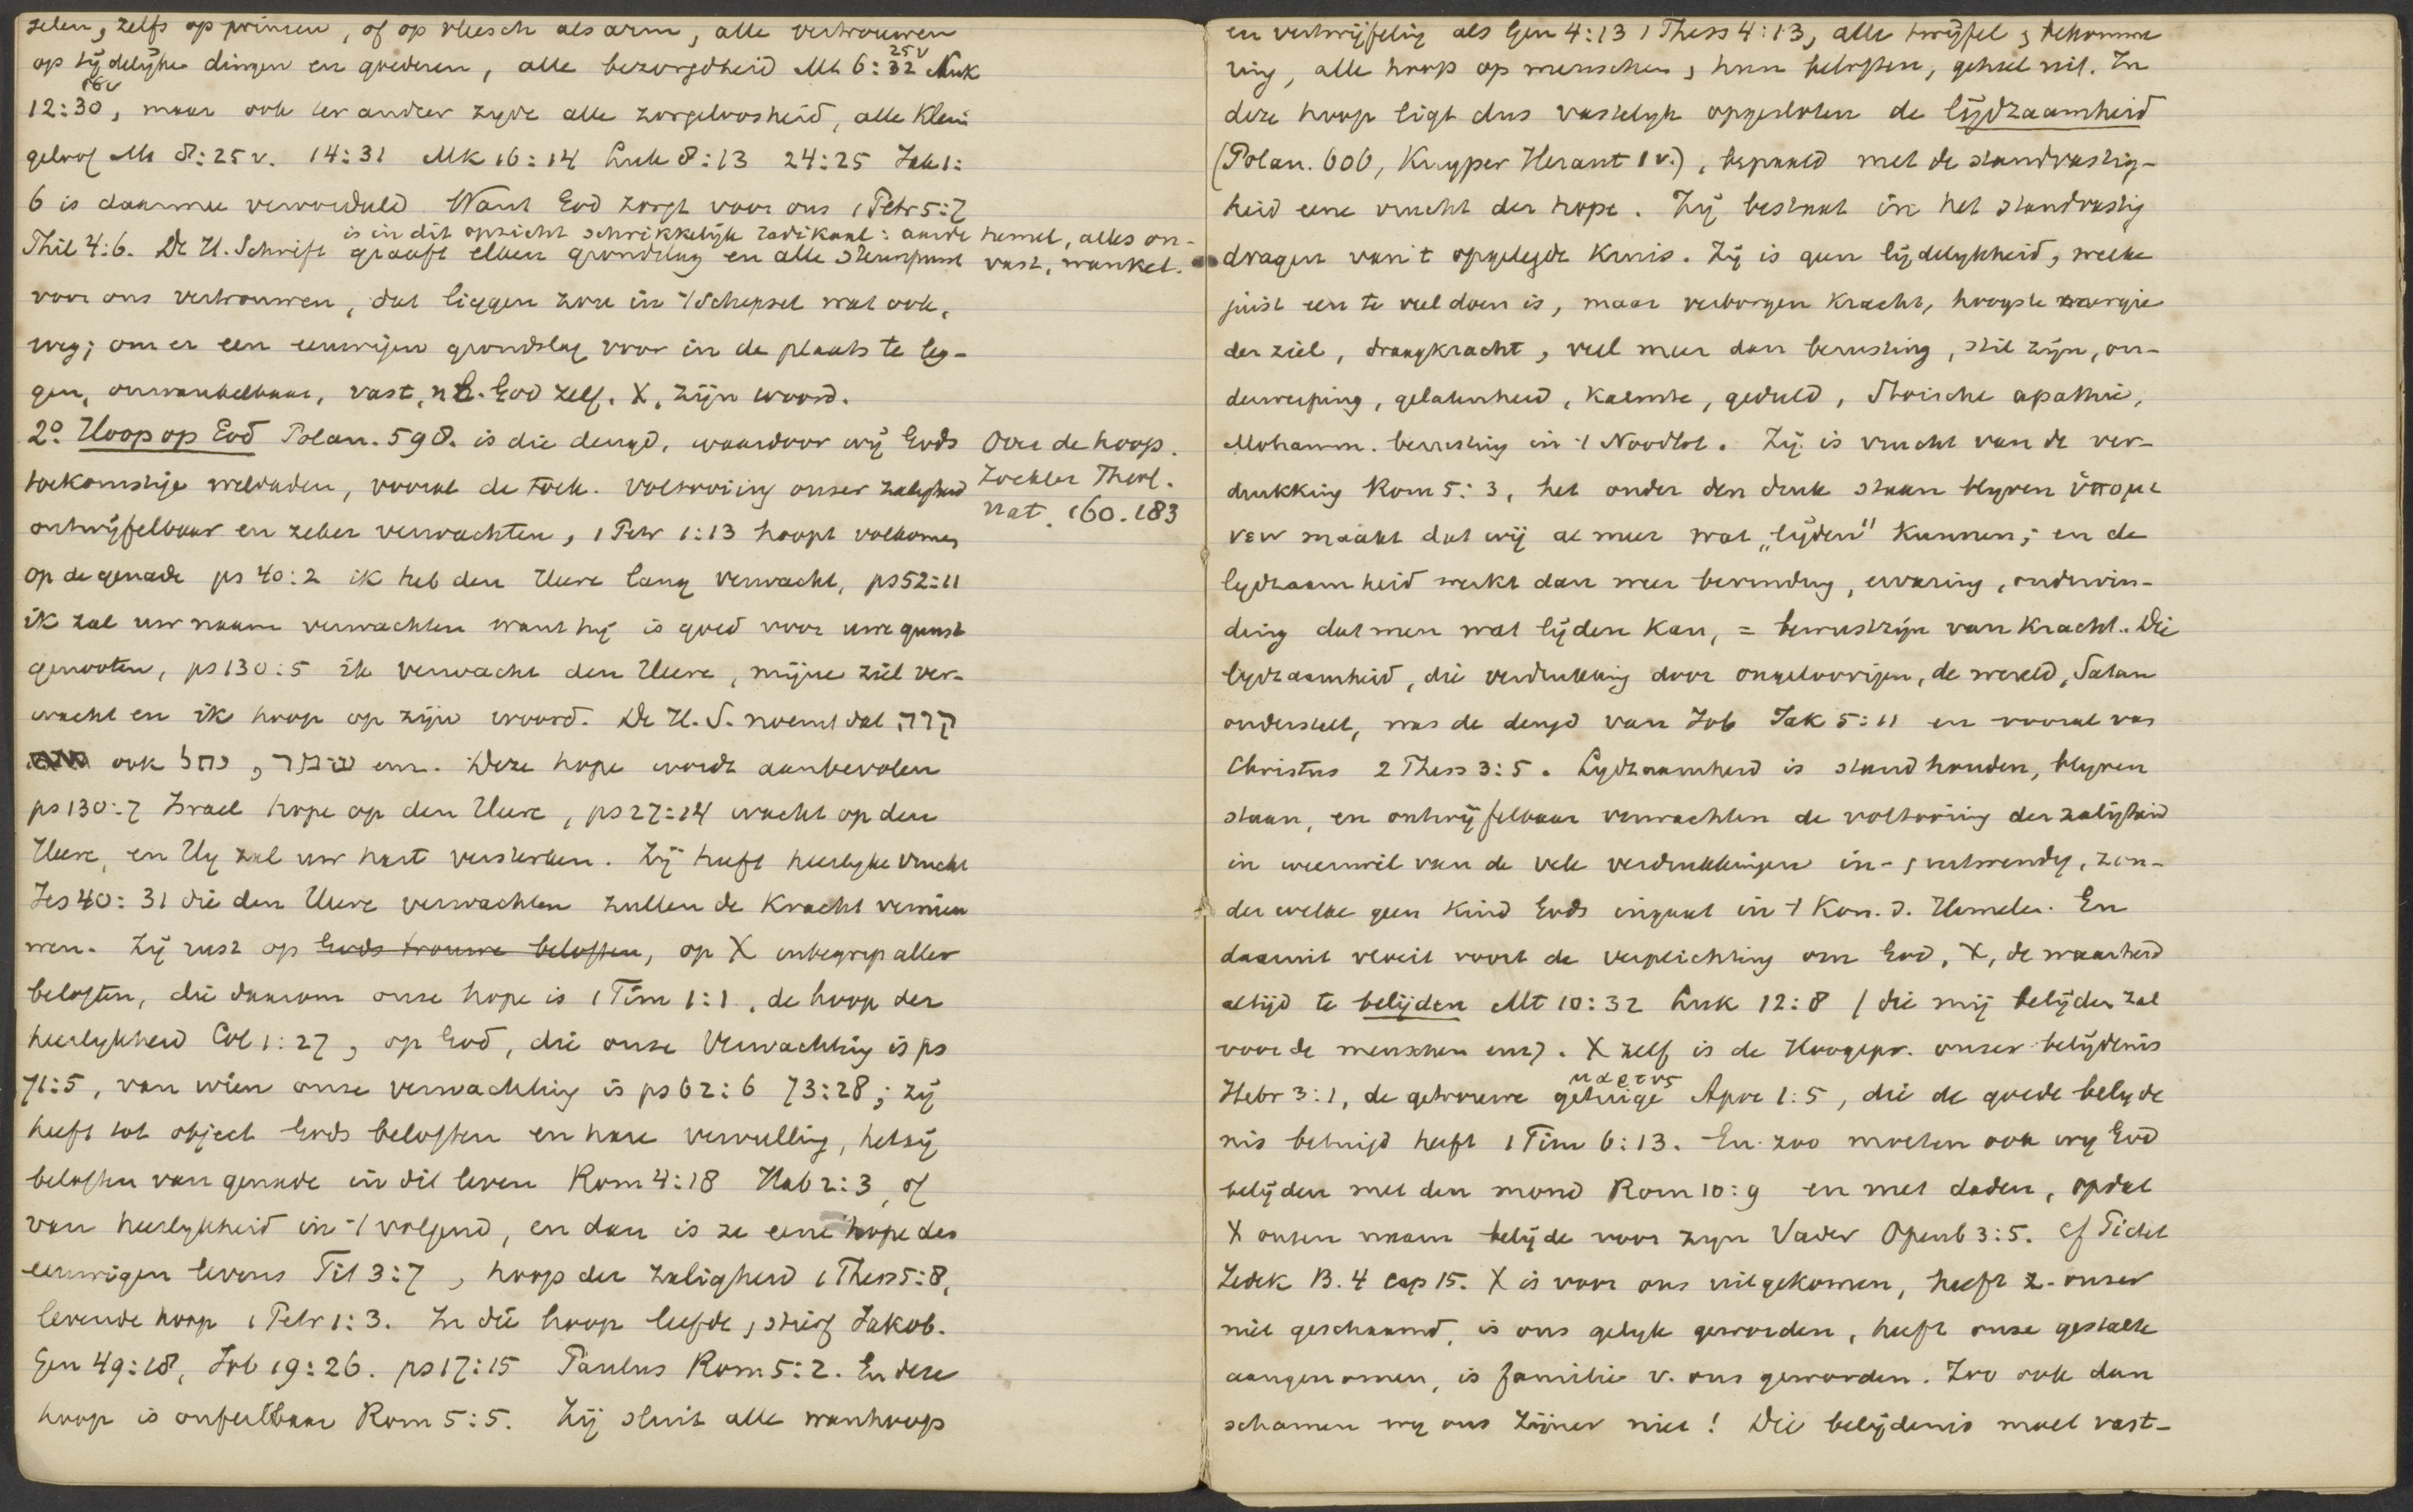 zelen, zelfs op prinsen, of op vleesch als arm, alle vertrouwen
op tijdelijke dingen en goederen, alle bezorgdheid Mt 6:32 25v Luk
12:30, 18v maar ook ter ander zyde alle zorgeloosheid, alle klein
geloof Mt 8:25 v. 14:31 Mk 16:14 Luk 8:13 24:25 Jak 1:
6 is daarmee veroordeeld Want God zorgt voor ons 1 Petr 5:7
is in dit opzicht schrikkelijk radikaal: aarde hemel, alles on-
Phil 4:6. De H. Schrift graaft elken grondslag en alle steunpunt vast, wankel.
voor ons vertrouwen, dat liggen zou in 't schepsel wat ook,
weg; om er een eeuwigen grondslag voor in de plaats te leg-
gen, onwankelbaar, vast, nl. God zelf, X, zijn woord.
2o. Hoop op God Polan. 598. is die deugd, waardoor wij Gods
Over de hoop.
Zockler Theol.
nat. 160. 183
toekomstige weldaden, vooral de toek. voltooiing onzer zaligheid
ontwijfelbaar en zeker verwachten, 1 Petr 1:13 hoopt volkomen
op de genade ps 40:2 ik heb den Heere lang verwacht, ps 52:11
ik zal uw naam verwachten want hij is goed voor uwe gunst
genooten, ps 130:5 ik verwacht den Heere, mijne ziel ver-
wacht en ik hoop op zijn woord. De H. S. noemt dat קוה
ook יחל, שבר enz. Deze hope wordt aanbevolen
ps 130:7 Israel hope op den Heere, ps 27:14 wacht op den
Heere, en Hy zal uw hart versterken. Zij heeft heerlyke vrucht
Jes 40:31 die den Heere verwachten zullen de kracht vernieu
wen. Zij rust op Gods trouwe beloften, op X inbegrip aller
beloften, die daarom onze hope is 1 Tim 1:1, de hoop der
heerlykheid Col 1:27, op God, die onze Verwachting is ps
71:5, van wien onze verwachting is ps 62:6 73:28; zij
heeft tot object Gods beloften en hare vervulling, hetzij
beloften van genade in dit leven Rom 4:18 Hab 2:3, of
van heerlykheid in 't volgend, en dan is ze eene hope des
eeuwigen levens Tit 3:7, hoop der zaligheid 1 Thess 5:8,
levende hoop 1 Petr 1:3. In die hoop leefde, stierf Jakob.
Gen 49:18, Job 19:26. ps 17:15 Paulus Rom 5:2. En deze
hoop is onfeilbaar Rom 5:5. Zij sluit alle wanhoop
en vertwijfeling als Gen 4:13 1 Thess 4:13, alle twijfel, bekomme
ring, alle hoop op menschen, hun beloften, geheel uit. In
deze hoop ligt dus vastelijk opgesloten de lijdzaamheid
(Polan. 606, Kuyper Heraut 1 v.), bepaald met de standvastig-
heid eene vrucht der hope. Zij bestaat in het standvastig
dragen van 't opgelegde kruis. Zij is geen lijdelykheid, welke
juist een te veel doen is, maar verborgen kracht, hoogste energie
der ziel, draagkracht, veel meer dan berusting, stil zijn, on-
derwerping, gelatenheid, kalmte, geduld, Stoische apathie,
Mohamm. berusting in 't Noodlot. Zij is vrucht van de ver-
drukking Rom 5:3, het onder den druk staan blyven ὑπομε
νειν maakt dat wij al meer wat „lijden" kunnen; en de
lydzaamheid werkt dan weer bevinding, ervaring, ondervin-
ding dat men wat lijden kan, = bewustzijn van kracht. Die
lydzaamheid, die verdrukking door ongeloovigen, de wereld, Satan
onderstelt, was de deugd van Job Jak 5:11 en vooral van
Christus 2 Thess 3:5. Lydzaamheid is stand houden, blyven
staan, en ontwijfelbaar verwachten de voltooiing der zaligheid
in weerwil van de vele verdrukkingen in-, uitwendig, zon-
der welke geen kind Gods ingaat in 't Kon. d. Hemelen. En
daaruit vloeit voort de verplichting om God, X, de waarheid
altijd te belijden Mt 10:32 Luk 12:8 (die mij belijden zal
voor de menschen enz). X zelf is de Hoogepr. onzer belijdenis
Hebr 3:1, de getrouwe getuige μαρτυς Apoc 1:5, die de goede belyde
nis betuigd heeft 1 Tim 6:13. En zoo moeten ook wy God
belijden met den mond Rom 10:9 en met daden, opdat
X onzen naam belijde voor zyn Vader Openb 3:5. cf Pictet
Zedek B. 4 cap 15. X is voor ons uitgekomen, heeft z. onzer
niet geschaamd, is ons gelyk geworden, heeft onze gestalte
aangenomen, is familie v. ons geworden. Zoo ook dan
schamen wy ons Zijner niet! Die belijdenis moet vast-